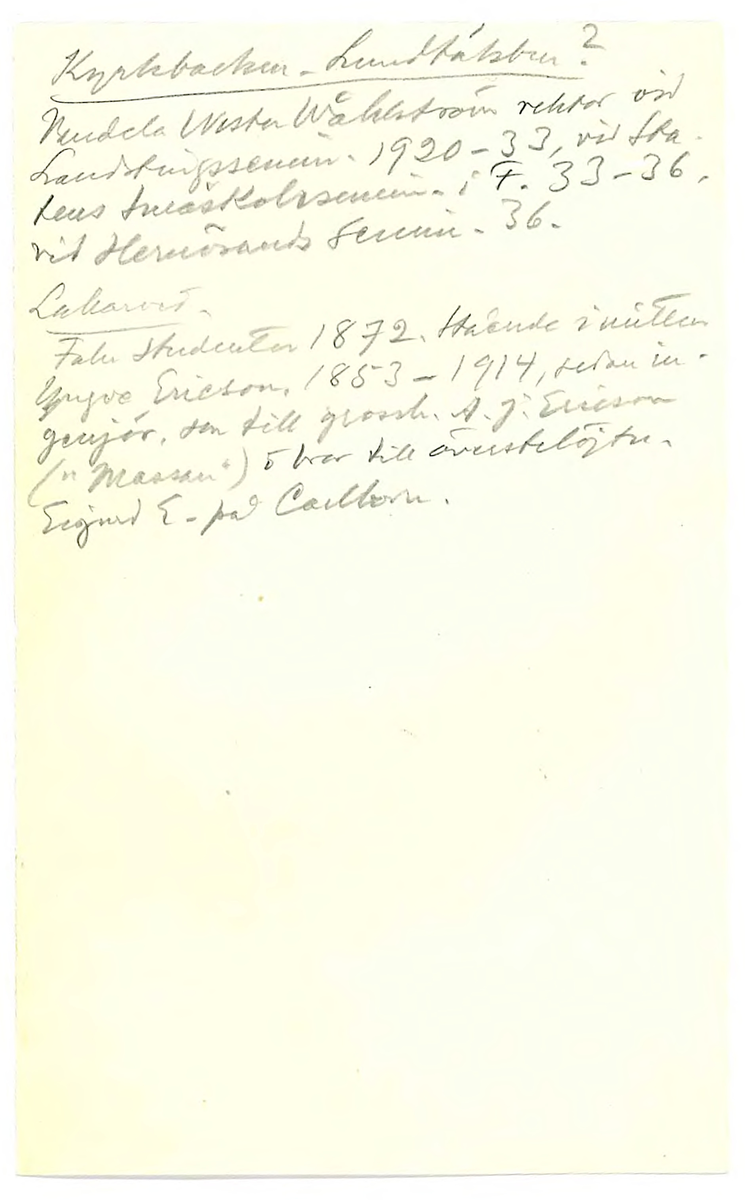 Kyrkbacken - Lundtäkten?
Vendela Wester Wåhlström rektor vid
Landstingssemin. 1920-33, vid Sta-
tens småskolesemin. i F. 33-36,
vid Hernösands Semin. 36-
Lallarvet.
Falu Studenter 1872. Stående i mitten
Yngve Ericson, 1853-1914, sedan in-
genjör, son till grossh. A. J. Ericson
("Massan") o bror till överstelöjtn.
Sigurd E- på Carlborn.